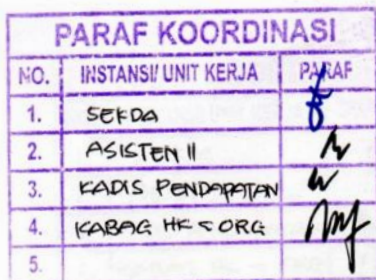 PARAF KOORDINASI
NO. INSTANSI/ UNIT KERJA PARAF
1. SEKDA
2. ASISTEN II
3. KADIS PENDAPATAN
4. KABAG HK & ORG
5.